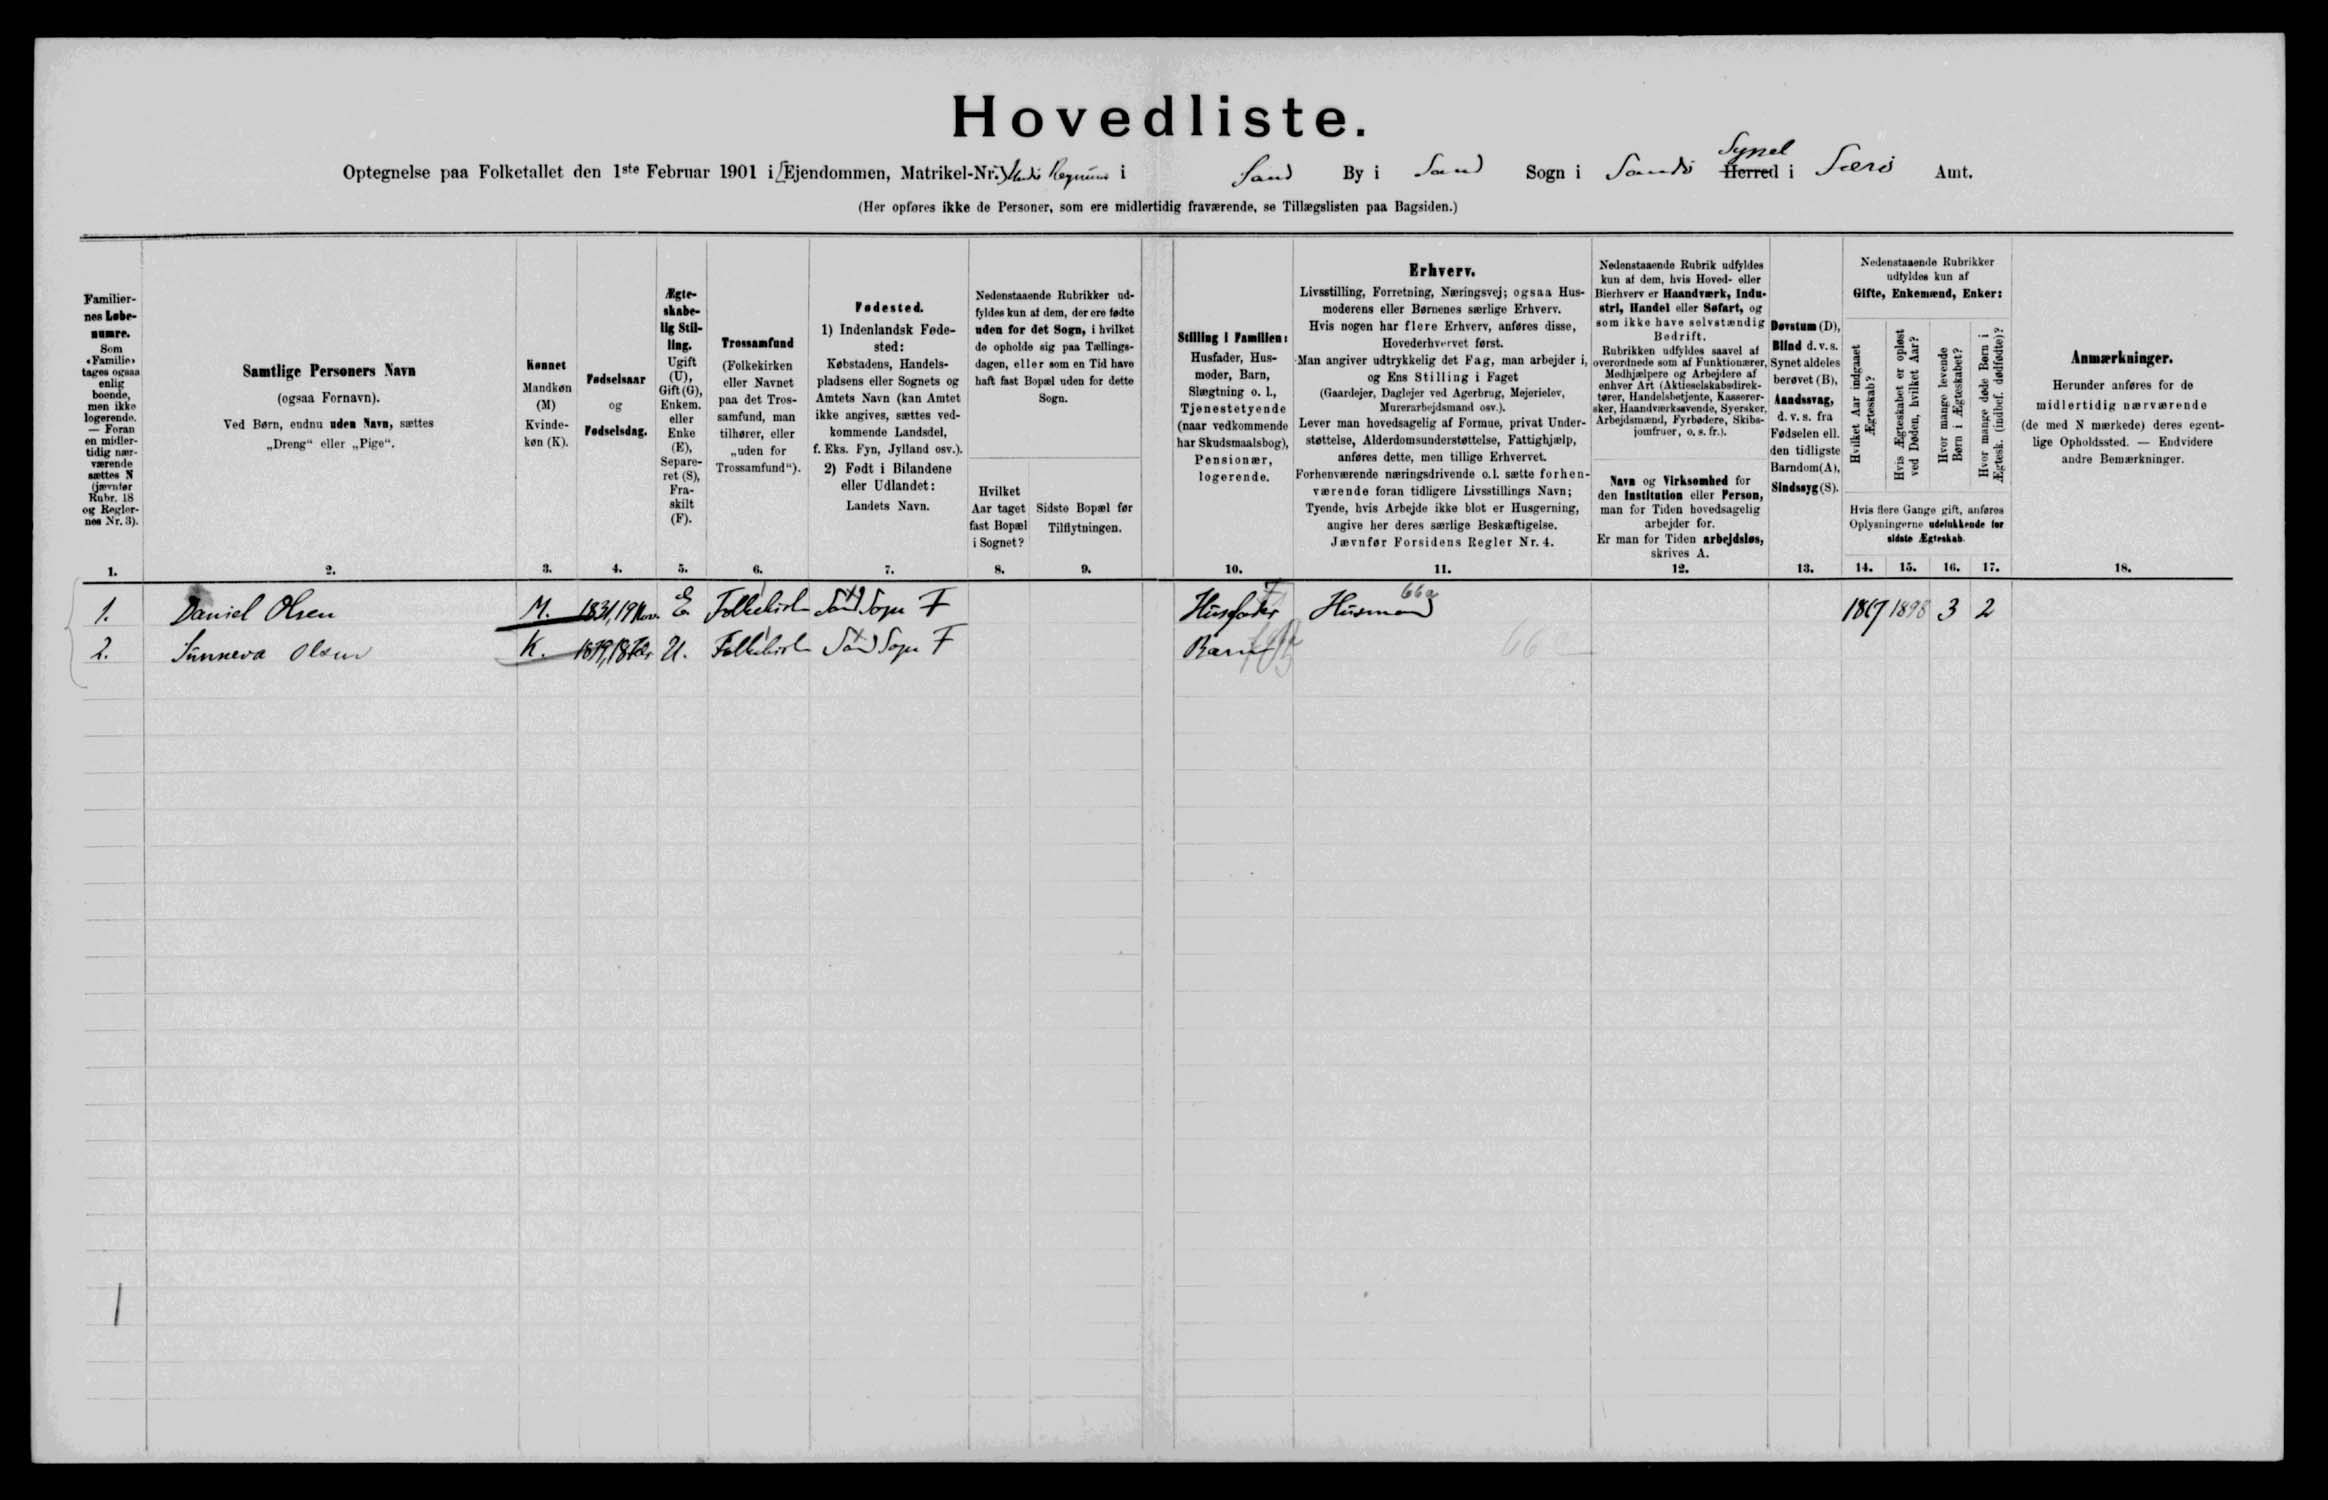 Hovedliste.
Optegnelse paa Folketallet den 1ste Februar 1901 i [Ejendommen, Matrikel-Nr.] i Sand By i Sand Sogn i Sandø Herred Syssel i Færø Amt.
(Her opføres ikke de Personer, som ere midlertidig fraværende, se Tillægslisten paa Bagsiden.)
Familier-
nes Løbe-
numre.
Som
«Familie»
tages ogsaa
enlig
boende,
men ikke
logerende.
— Foran
en midler-
tidig nær-
værende
sættes N
(jævnfør
Rubr. 18
og Regler-
nes Nr. 3).
1.
Samtlige Personers Navn
(ogsaa Fornavn).
Ved Børn, endnu uden Navn, sættes
„Dreng“ eller „Pige“.
2.
Kønnet
Mandkøn
(M)
Kvinde-
køn (K).
3.
Fødselsaar
og
Fødselsdag.
4.
Ægte-
skabe-
lig Stil-
ling.
Ugift
(U),
Gift (G),
Enkem.
eller
Enke
(E),
Separe-
ret (S),
Fra-
skilt
(F).
5.
Trossamfund
(Folkekirken
eller Navnet
paa det Tros-
samfund, man
tilhører, eller
„uden for
Trossamfund“).
6.
Fødested.
1) Indenlandsk Føde-
sted:
Købstadens, Handels-
pladsens eller Sognets og
Amtets Navn (kan Amtet
ikke angives, sættes ved-
kommende Landsdel,
f. Eks. Fyn, Jylland osv.).
2) Født i Bilandene
eller Udlandet:
Landets Navn.
7.
Nedenstaaende Rubrikker ud-
fyldes kun af dem, der ere fødte
uden for det Sogn, i hvilket
de opholde sig paa Tællings-
dagen, eller som en Tid have
haft fast Bopæl uden for dette
Sogn.
Hvilket
Aar taget
fast Bopæl
i Sognet?
8.
Sidste Bopæl før
Tilflytningen.
9.
Stilling i Familien:
Husfader, Hus-
moder, Barn,
Slægtning o. l.,
Tjenestetyende
(naar vedkommende
har Skudsmaalsbog),
Pensionær,
logerende.
10.
Erhverv.
Livsstilling, Forretning, Næringsvej; ogsaa Hus-
moderens eller Børnenes særlige Erhverv.
Hvis nogen har flere Erhverv, anføres disse,
Hovederhvervet først.
Man angiver udtrykkelig det Fag, man arbejder i,
og Ens Stilling i Faget
(Gaardejer, Daglejer ved Agerbrug, Mejerielev,
Murerarbejdsmand osv.).
Lever man hovedsagelig af Formue, privat Under-
støttelse, Alderdomsunderstøttelse, Fattighjælp,
anføres dette, men tillige Erhvervet.
Forhenværende næringsdrivende o.l. sætte forhen-
værende foran tidligere Livsstillings Navn;
Tyende, hvis Arbejde ikke blot er Husgerning,
angive her deres særlige Beskæftigelse.
Jævnfør Forsidens Regler Nr. 4.
11.
Nedenstaaende Rubrik udfyldes
kun af dem, hvis Hoved- eller
Bierhverv er Haandværk, Indu-
stri, Handel eller Søfart, og
som ikke have selvstændig
Bedrift.
Rubrikken udfyldes saavel af
overordnede som af Funktionærer,
Medhjælpere og Arbejdere af
enhver Art (Aktieselskabsdirek-
tører, Handelsbetjente, Kasserer-
sker, Haandværkssvende, Syersker,
Arbejdsmænd, Fyrbødere, Skibs-
jomfruer, o. s. fr.).
Navn og Virksomhed for
den Institution eller Person,
man for Tiden hovedsagelig
arbejder for.
Er man for Tiden arbejdsløs,
skrives A.
12.
Døvstum (D),
Blind d. v. s.
Synet aldeles
berøvet (B),
Aandssvag,
d. v. s. fra
Fødselen ell.
den tidligste
Barndom (A),
Sindssyg (S).
13.
Nedenstaaende Rubrikker
udfyldes kun af
Gifte, Enkemænd, Enker:
Hvilket Aar indgaaet
Ægteskab?
Hvis Ægteskabet er opløst
ved Døden, hvilket Aar?
Hvor mange levende
Børn i Ægteskabet?
Hvor mange døde Børn i
Ægtesk. (indbef. dødfødte)?
Hvis flere Gange gift, anføres
Oplysningerne udelukkende for
sidste Ægteskab.
14. 15. 16. 17.
Anmærkninger.
Herunder anføres for de
midlertidig nærværende
(de med N mærkede) deres egent-
lige Opholdssted. — Endvidere
andre Bemærkninger.
18.
1. Daniel Olsen M. 1831, 19 Nov. E. Folkekirken Sand Sogn F Husfader Husmand 66a 1867 1898 3 2
2. Sunneva Olsen K. 1879, 18 U. Folkekirken Sand Sogn F Barn 66